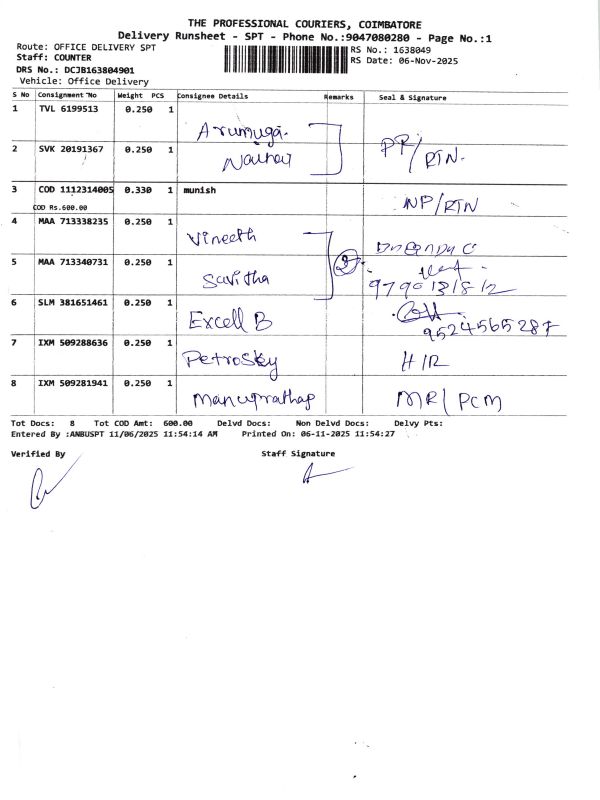 THE PROFESSIONAL COURIERS, COIMBATORE
Delivery Runsheet - SPT - Phone No.:9047080280 - Page No.:1
Route: OFFICE DELIVERY SPT RS No.: 1638049
Staff: COUNTER RS Date: 06-Nov-2025
DRS No.: DCJB163804901
Vehicle: Office Delivery
S No Consignment No Weight PCS Consignee Details Remarks Seal & Signature
1 TVL 6199513 0.250 1 Arumuga
2 SVK 20191367 0.250 1 PP/RTN.
3 COD 1112314005 0.330 1 munish NP/RTN
COD Rs.600.00
4 MAA 713338235 0.250 1 Vineeth
5 MAA 713340731 0.250 1 Savitha 2
9790131812
6 SLM 381651461 0.250 1 Excell B
9524565287
7 IXM 509288636 0.250 1 Petrosky H/R
8 IXM 509281941 0.250 1 Manuprathap MR/PCM
Tot Docs: 8 Tot COD Amt: 600.00 Delvd Docs: Non Delvd Docs: Delvy Pts:
Entered By :ANBUSPT 11/06/2025 11:54:14 AM Printed On: 06-11-2025 11:54:27
Verified By Staff Signature